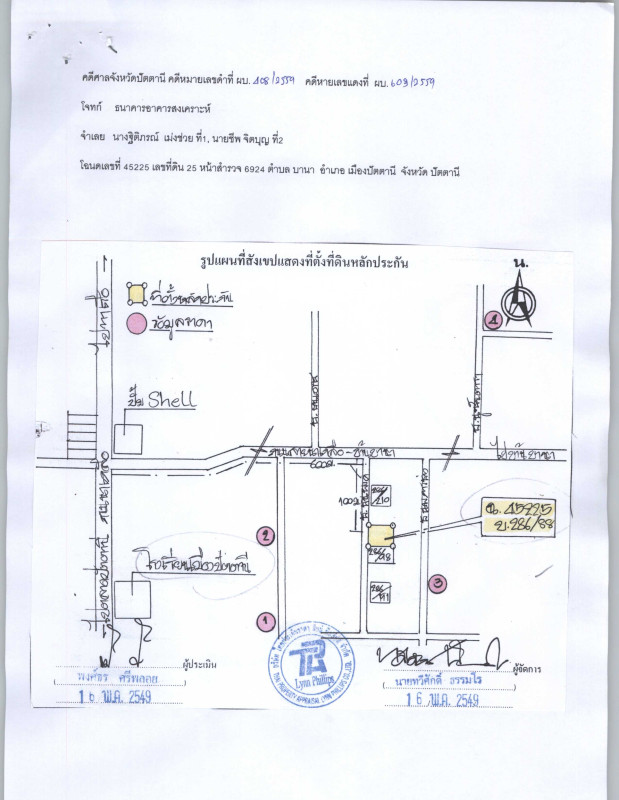 คดีศาลจังหวัดปัตตานี คดีหมายเลขดำที่ ผบ. 408/2559 คดีหายเลขแดงที่ ผบ. 603/2559
โจทก์ ธนาคารอาคารสงเคราะห์
จำเลย นางฐิติภรณ์ เม่งช่วย ที่1, นายชีพ จิตบุญ ที่2
โฉนดเลขที่ 45225 เลขที่ดิน 25 หน้าสำรวจ 6924 ตำบล บานา อำเภอ เมืองปัตตานี จังหวัด ปัตตานี
รูปแผนที่สังเขปแสดงที่ตั้งที่ดินหลักประกัน
น.
ที่ตั้งหลักประกัน
ข้อมูลราคา
4
ปั๊ม Shell
ไปบ้านบานา
600ม.
100ม.
286/90
ฉ. 45225
บ.286/88
2
3
1
286/91
ผู้ประเมิน
ผู้จัดการ
พงศ์ธร ศรีพลอย
16 พ.ค. 2549
Lynn Phillips
นายทวีศักดิ์ ธรรมโร
16 พ.ค. 2549